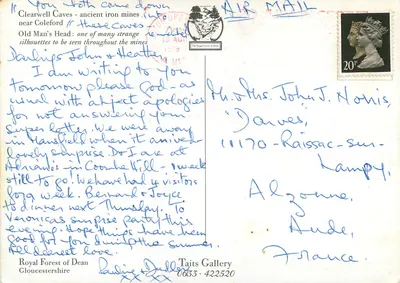 "You both came down
into
these caves
re-visited
AIR MAIL
Clearwell Caves - ancient iron mines
near Coleford
Old Man's Head: one of many strange
silhouettes to be seen throughout the mines
20P
Darlings John & Heather
I am writing to you
tomorrow please God - as
usual with abject apologies
for not answering your
super letter. We were away
in Mansfield when it arrived
lovely surprise. Do I are at
Adriano's in Coombe Hill - 1 week
still to go! We have had 4 visitors
long week. Bernard & Joyce
to dinner next Thursday. To
Veronica's surprise party this
evening. Hope things have been
good for you during this summer.
All dearest love.
Pauline & Dudley
xx xx
Mr. & Mrs. John J. Norris,
'Darves',
11170 - Raissac-sur-
Lampy,
Alzonne,
Aude,
France.
Royal Forest of Dean
Gloucestershire
Taits Gallery
0633 - 422520